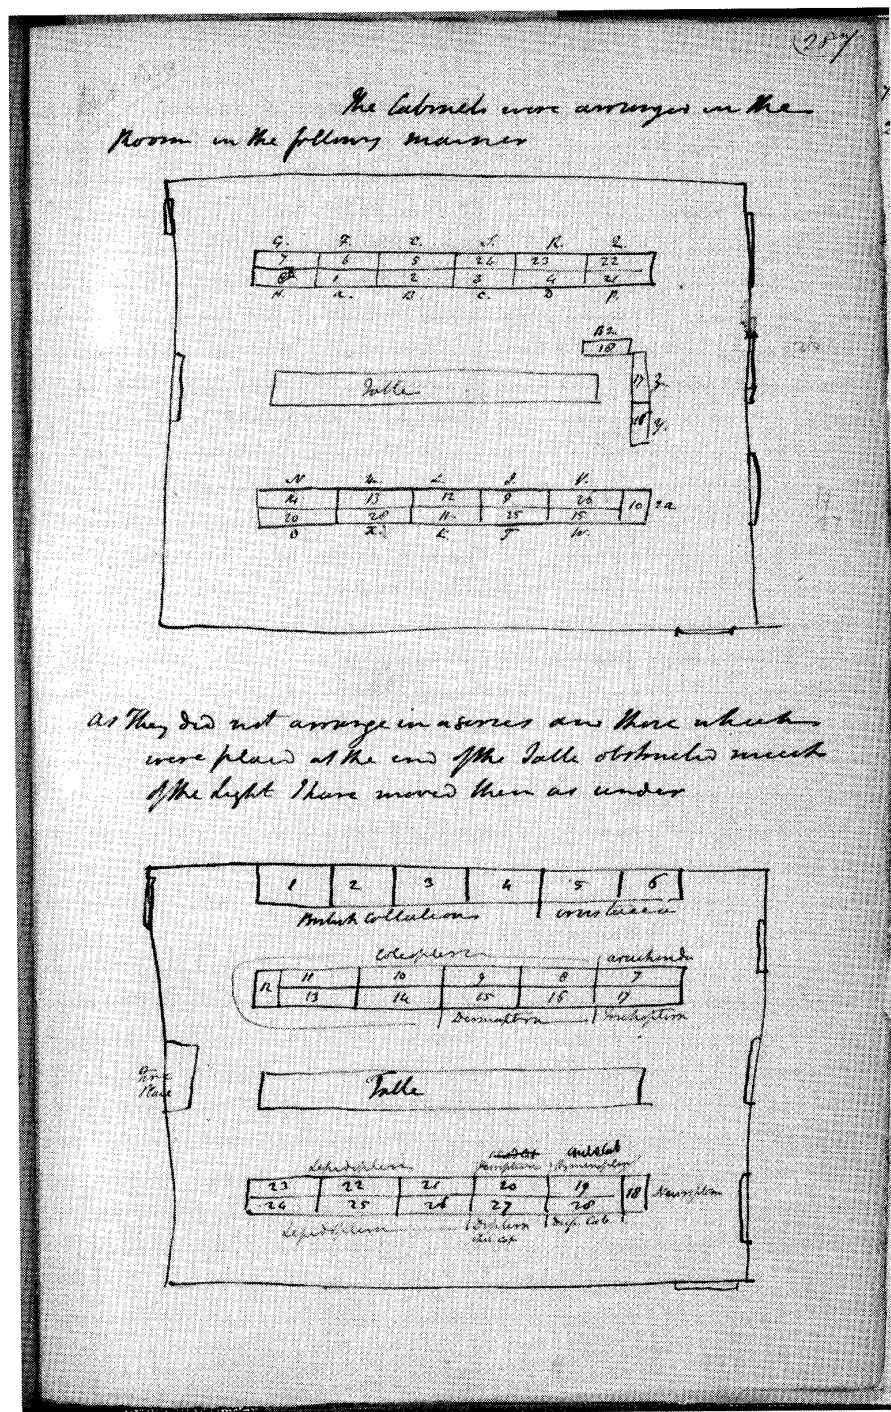 287
The Cabinets were arranged in the
Room in the follows manner
G. F. E. S. R. Q.
7 6 5 24 23 22
8 1 2 3 4 21
H. A. B. C. D P.
B2
18
Table
17 Z.
16 Y.
N M. L. I. V.
14 13 12 9 26
20 28 11 25 15
10 2a
O X. K. T W.
as They did not arrange in a series and those which
were placed at the end of the Table obstructed much
of the Light I have moved them as under
1 2 3 4 5 6
British Collections crustacea
Coleoptera arachnida
12
11 10 9 8 7
13 14 15 16 17
Dermaptera
Fire
Place
Table
Lepidoptera
23 22 21 20 19
24 25 26 27 28
18
Lepidoptera Diptera Dup. Cab